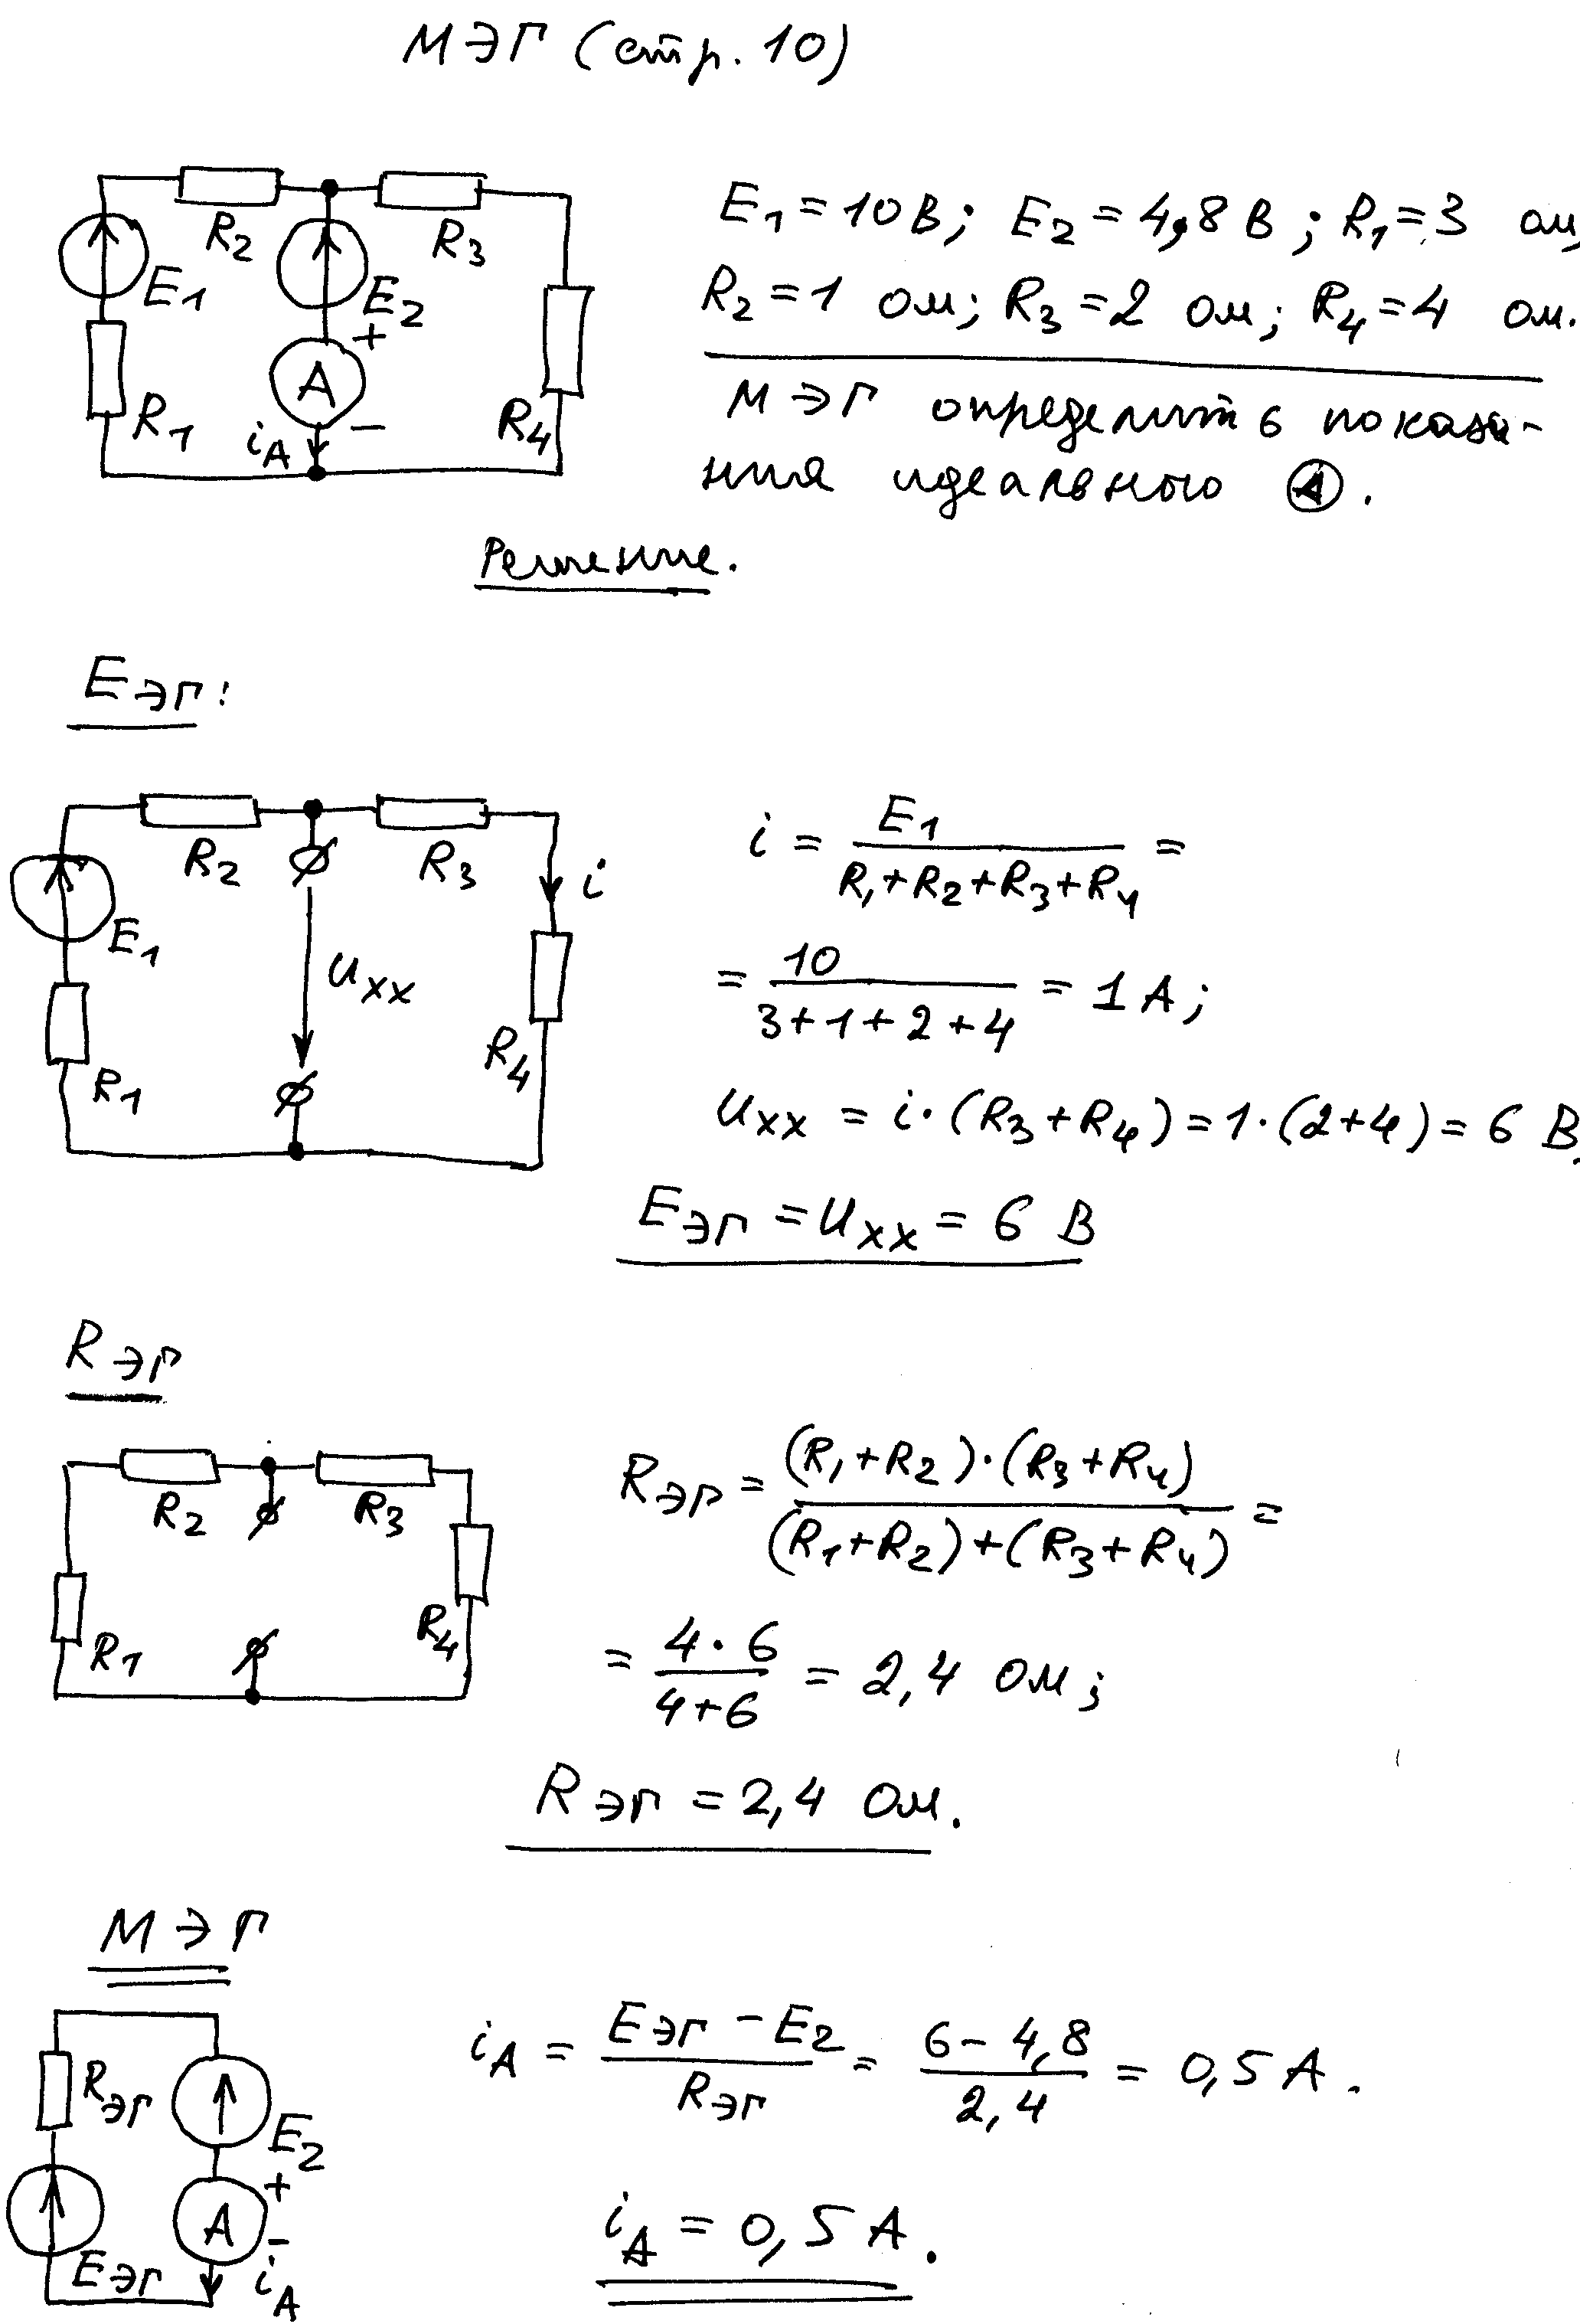 МЭГ (стр. 10)
R2
R3
E1
E2
+
A
R1
iA
−
R4
E1 = 10 В; E2 = 4,8 В; R1 = 3 ом,
R2 = 1 ом; R3 = 2 ом; R4 = 4 ом.
МЭГ определить показа-
ния идеального A.
Решение.
EЭГ:
R2
R3
i
E1
Uxx
R1
R4
i = E1 / (R1 + R2 + R3 + R4) =
= 10 / (3 + 1 + 2 + 4) = 1 А;
Uxx = i · (R3 + R4) = 1 · (2 + 4) = 6 В.
EЭГ = Uxx = 6 В
RЭГ
R2
R3
R1
R4
RЭГ = (R1 + R2) · (R3 + R4) / (R1 + R2) + (R3 + R4) =
= 4 · 6 / 4 + 6 = 2,4 ОМ;
RЭГ = 2,4 Ом.
МЭГ
RЭГ
E2
+
A
−
EЭГ
iA
iA = EЭГ − E2 / RЭГ = 6 − 4,8 / 2,4 = 0,5 А.
iA = 0,5 А.